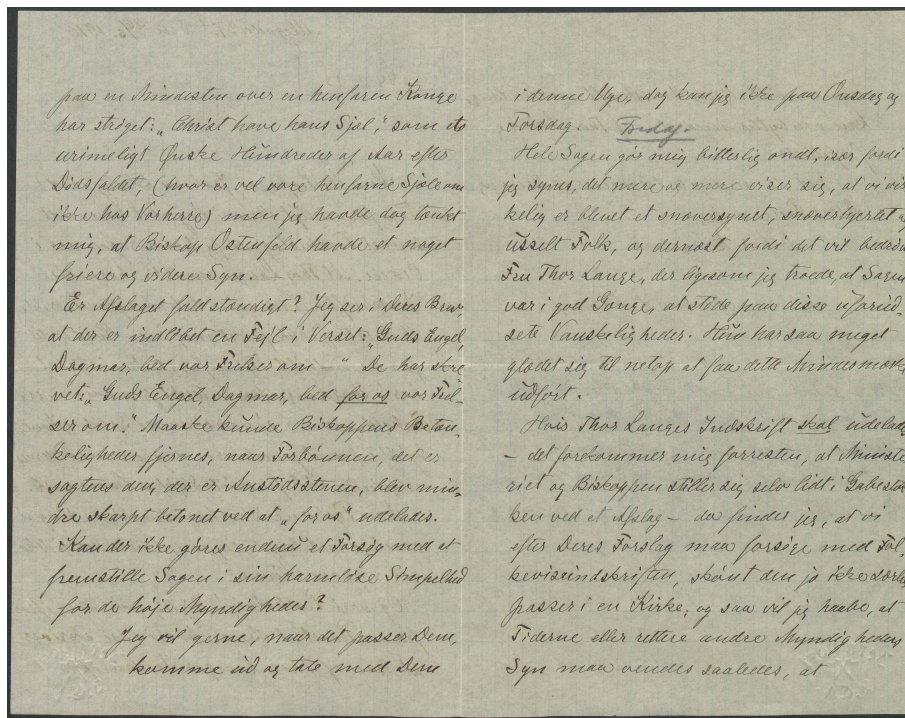 paa en Mindesten over en henfaren Konge
har strøget: „Christ have hans Sjæl," som et
urimeligt Ønske Hundreder af Aar efter
Dødsfaldet, (hvor er vel vore henfarne Sjæle om
ikke hos Vorherre) men jeg havde dog tænkt
mig, at Biskop Ostenfeld havde et noget
friere og videre Syn.
Er Afslaget fuldstændigt? Jeg ser i Deres Brev,
at der er indløbet en Fejl i Verset: „Guds Engel,
Dagmar, bed vor Frelser om — " De har skre
vet: „Guds Engel, Dagmar, bed for os vor Frel-
ser om." Maaske kunde Biskoppens Betæn-
keligheder fjernes, naar Forbønnen, det er
sagtens den, der er Anstødsstenen, blev min-
dre skarpt betonet ved at „for os" udelades.
Kan der ikke gøres endnu et Forsøg med at
fremstille Sagen i sin harmløse Simpelhed
for de høje Myndigheder?
Jeg vil gerne, naar det passer Dem,
komme ud og tale med Dem
i denne Uge, dog kan jeg ikke paa Onsdag og
Torsdag. Fredag.
Hele Sagen gør mig bitterlig ondt, især fordi
jeg synes, det mere og mere viser sig, at vi vir
kelig er blevet et snæversynet, snæverhjertet og
usselt Folk, og dernæst fordi det vil bedrøve
Fru Thor Lange, der ligesom jeg troede, at Sagen
var i god Gænge, at støde paa disse uforud-
sete Vanskeligheder. Hun har saa meget
glædet sig til netop at faa dette Mindesmærke
udført.
Hvis Thor Langes Indskrift skal udelades
— det forekommer mig forresten, at Ministe
riet og Biskoppen stiller sig selv lidt i Gabestok
ken ved et Afslag — da findes jeg, at vi
efter Deres Forslag maa forsøge med Fol-
keviseindskriften, skønt den jo ikke særlig
passer i en Kirke; og saa vil jeg haabe, at
Tiderne eller rettere andre Myndigheders
Syn maa vendes saaledes, at